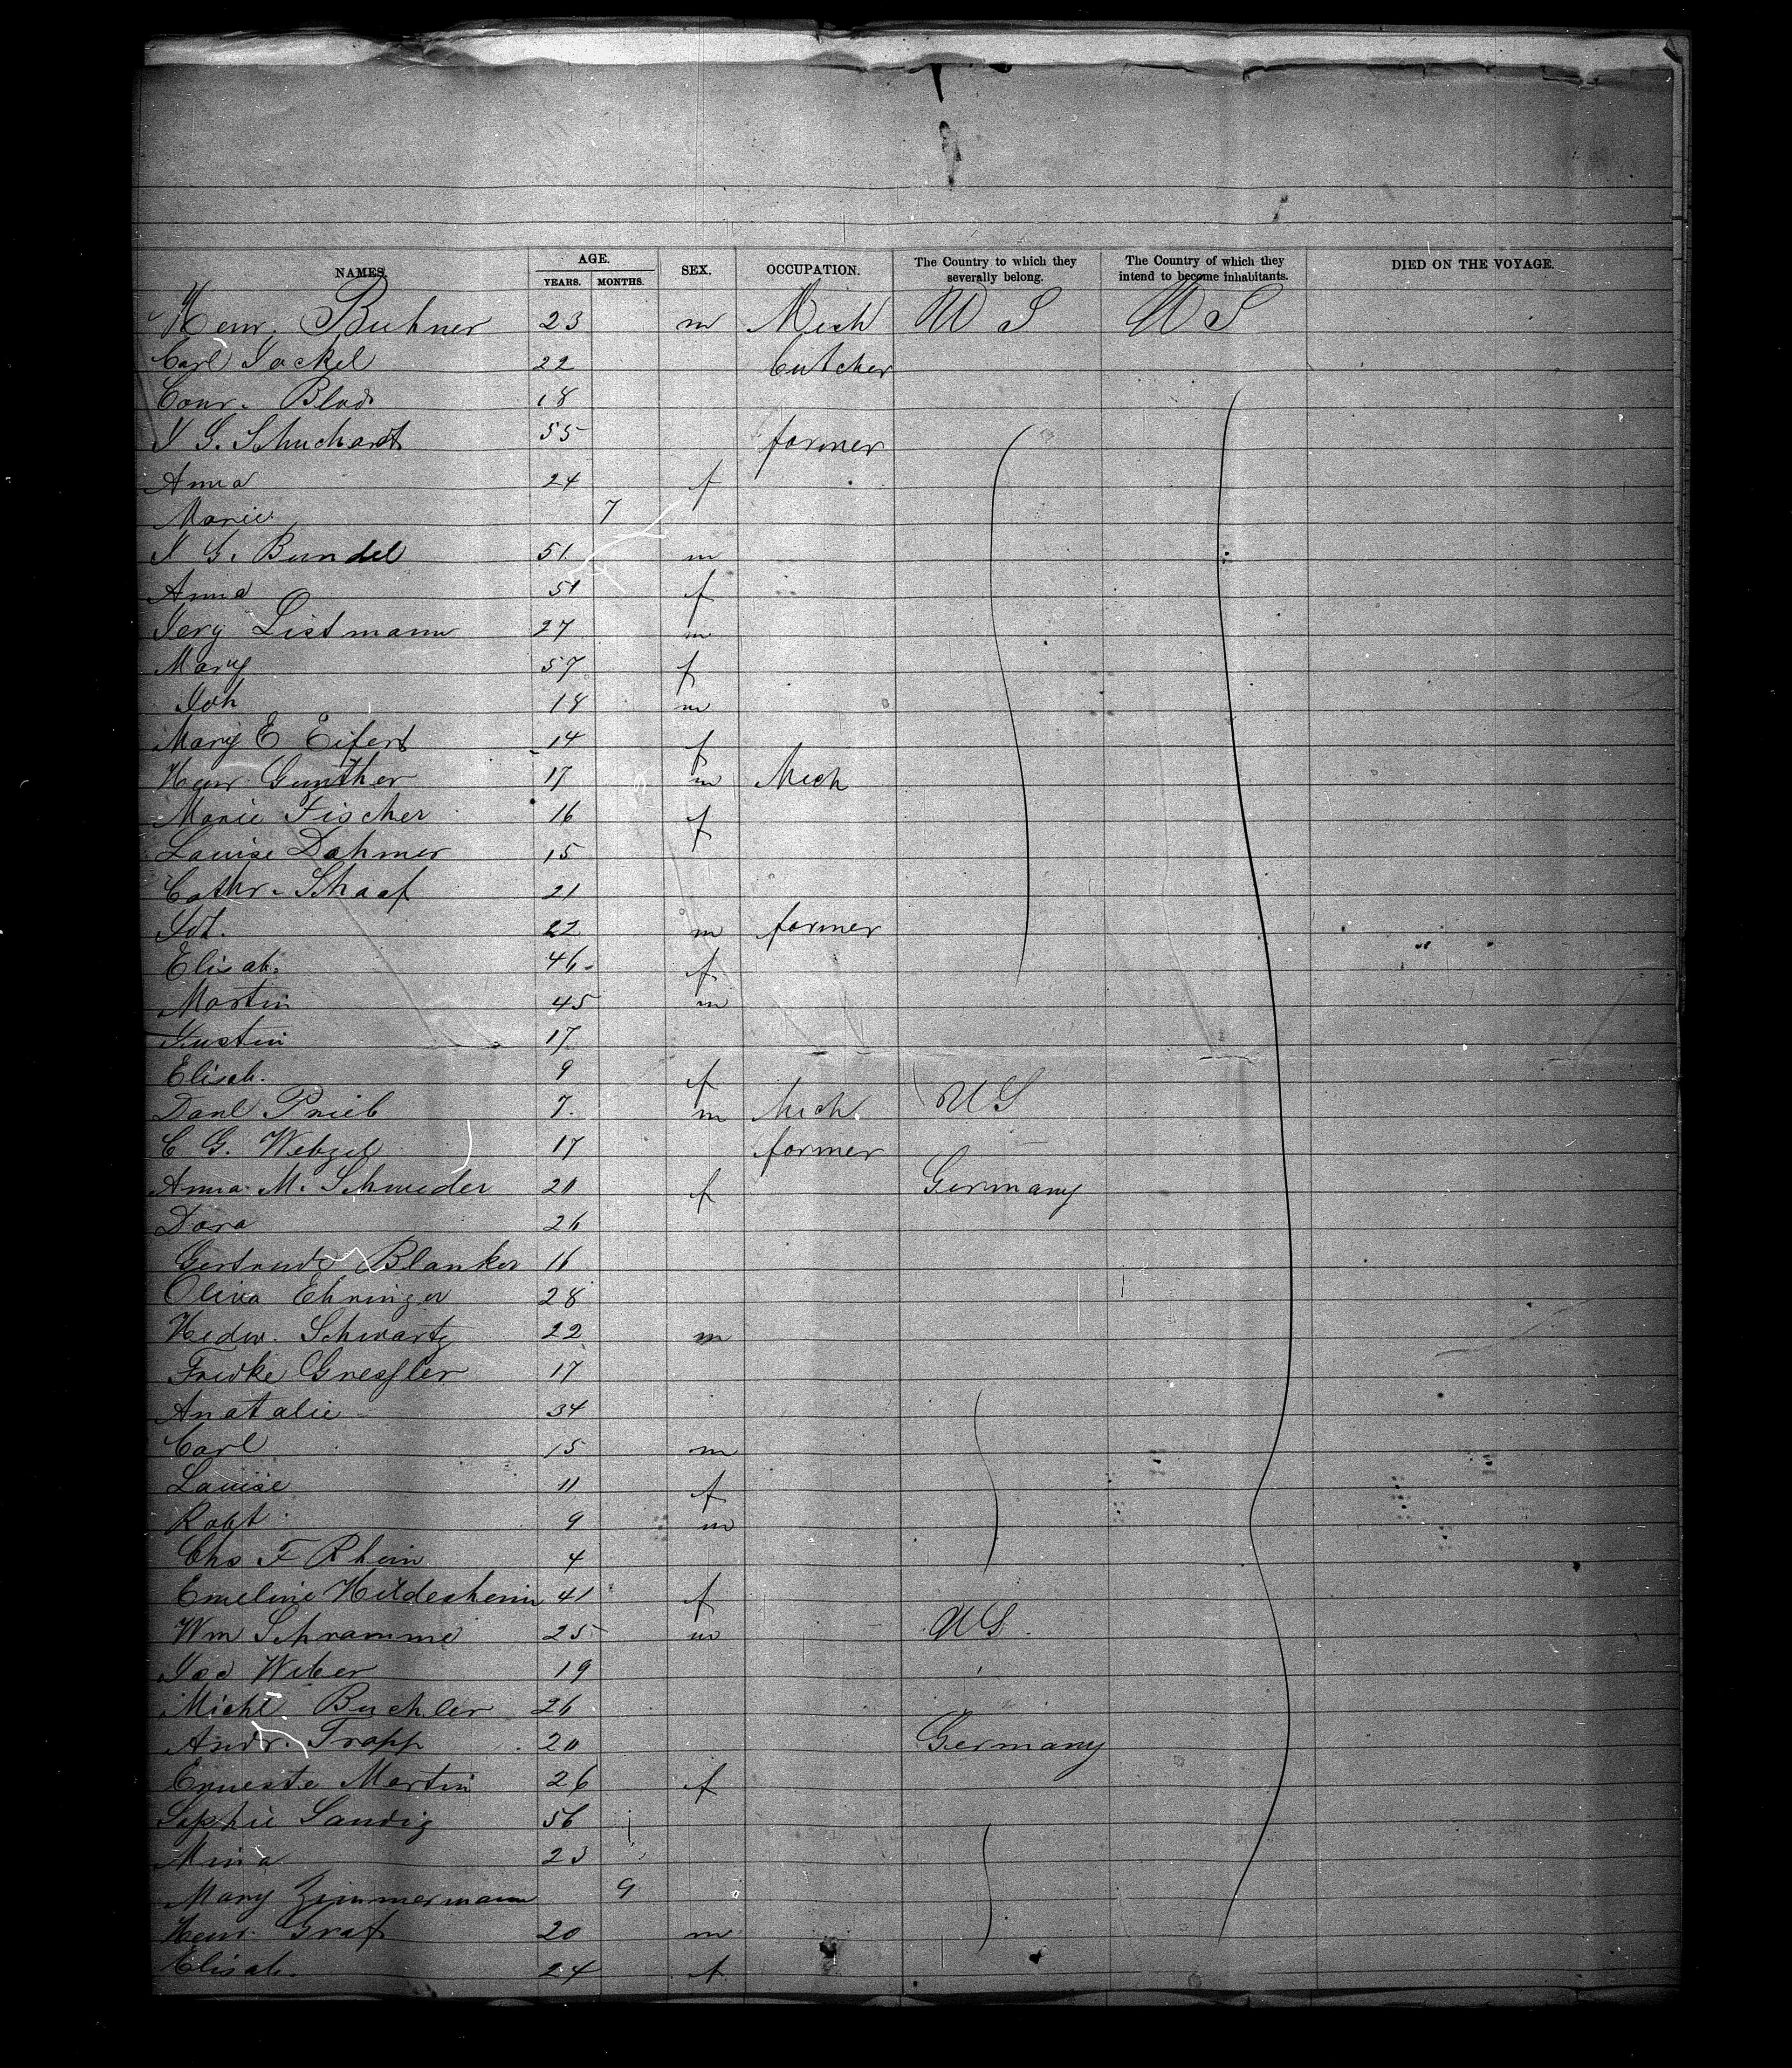 NAMES. AGE. YEARS. MONTHS. SEX. OCCUPATION. The Country to which they severally belong. The Country of which they intend to become inhabitants. DIED ON THE VOYAGE.
Henr. Buhner 23 m Mech U S U S
Carl Jackel 22 butcher
Conr. Blad 18
J G. Schuchardt 55 farmer
Anna 24 f
Marie 7
J G. Bundel 51 m
Anna 51 f
Jery Listmann 27 m
Mary 57 f
Joh 18 m
Mary E Eifert 14 f
Henr Gunther 17 m Mech
Marie Fischer 16 f
Louise Dahmer 15
Cathr. Schaaf 21
Jot. 22 m farmer
Elisab. 46 f
Martin 45 m
Justin 17
Elisab. 9 f
Danl Prieb 7 m Mech U S
C G. Wetzel 17 farmer
Anna M. Schneider 20 f Germany
Dora 26
Gertrude Blanker 16
Olina Ehninger 28
Hedw. Schwartz 22 m
Fredke Gressler 17
Anatalie 34
Carl 15 m
Louise 11 f
Robt 9 m
Chs F Rhein 4
Emeline Hildesheim 41 f
Wm Schramme 25 m U S
Jos Weber 19
Michl. Buchler 26
Andr. Trapp 20 Germany
Erneste Martin 26 f
Sophie Sandig 56
Mina 23
Mary Zimmermann 9
Henr. Graf 20 m
Elisab. 24 f